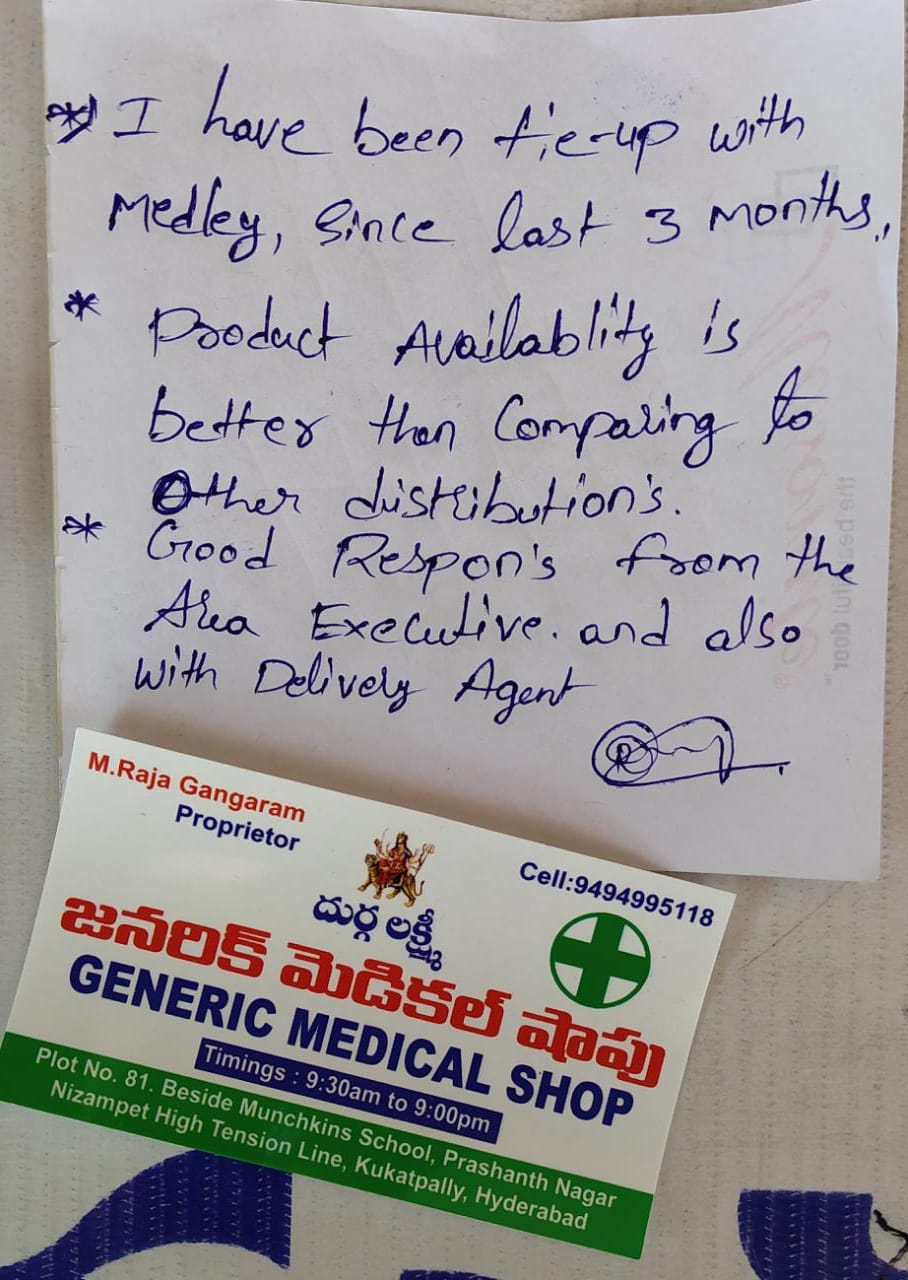 * I have been tie-up with
Medley, Since last 3 months.
* Product Availablity is
better than Comparing to
Other distribution's.
* Good Respon's from the
Area Executive. and also
with Delivery Agent
M.Raja Gangaram
Proprietor
Cell:9494995118
దుర్గ లక్ష్మీ
జనరిక్ మెడికల్ షాపు
GENERIC MEDICAL SHOP
Timings : 9:30am to 9:00pm
Plot No. 81. Beside Munchkins School, Prashanth Nagar
Nizampet High Tension Line, Kukatpally, Hyderabad